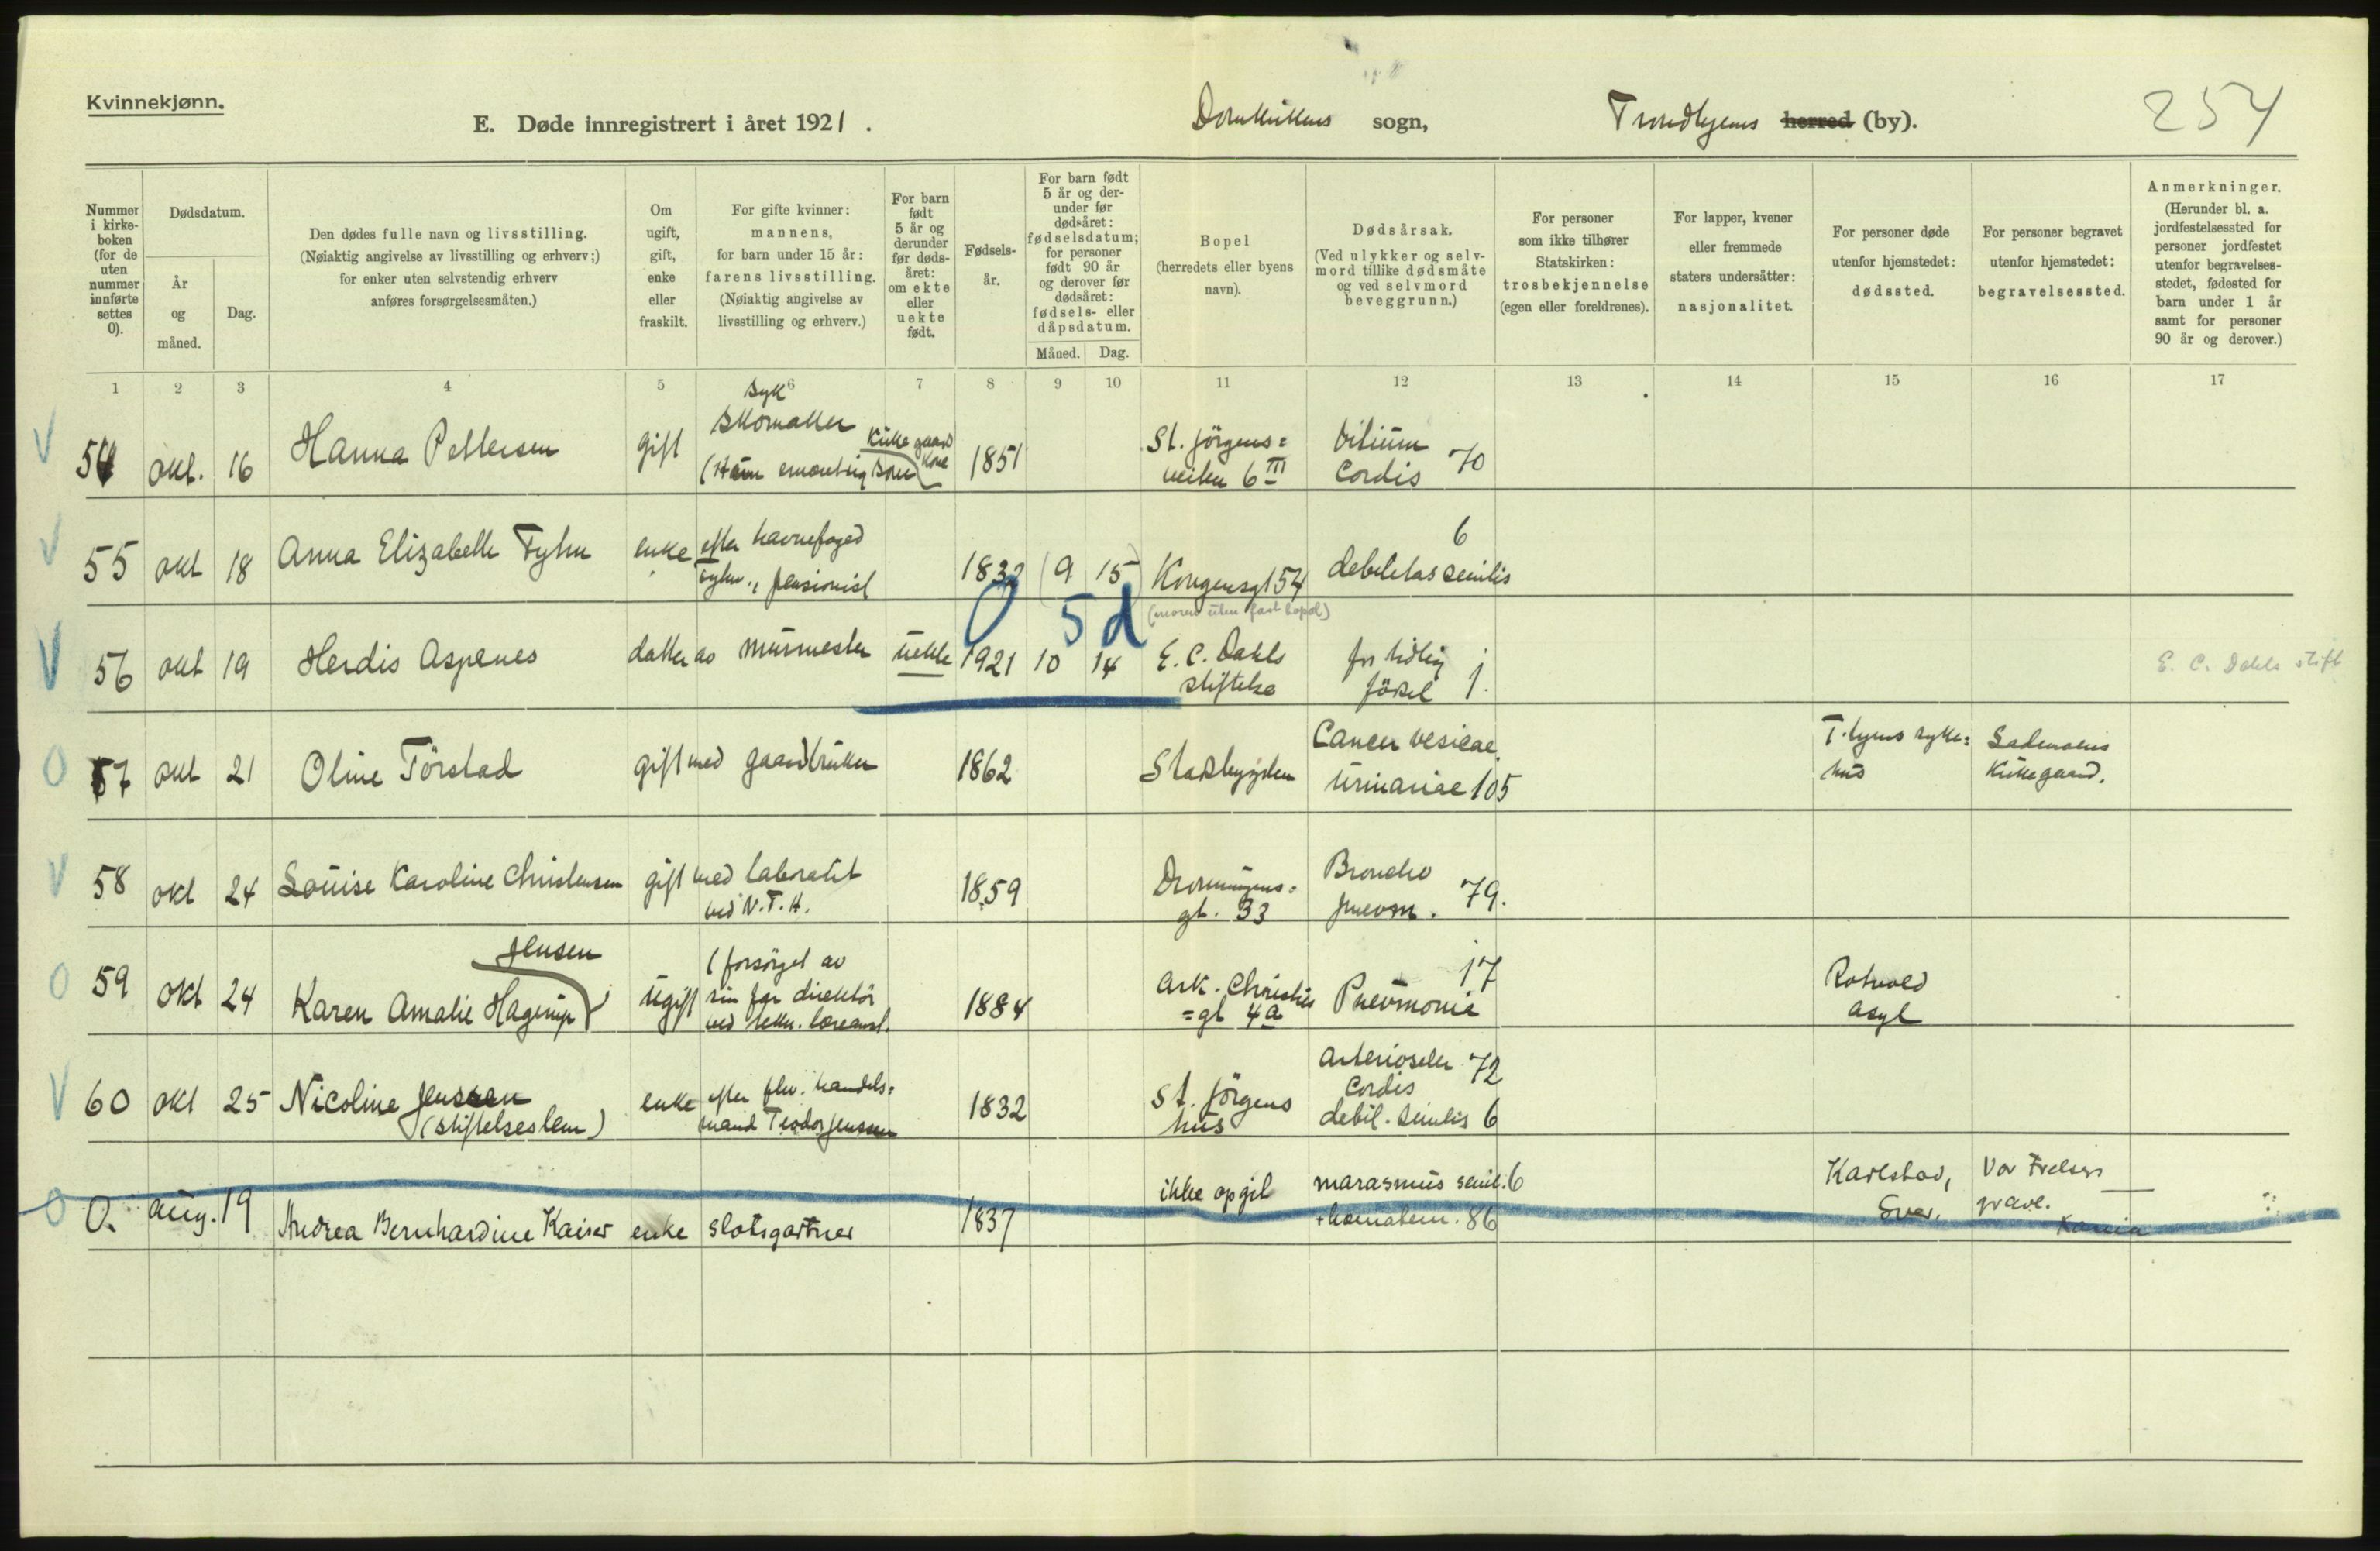 Kvinnekjønn.
E. Døde innregistrert i året 1921. sogn, Trondhjems herred (by). 254
Nummer i kirkeboken (for de uten nummer innførte settes 0).
Dødsdatum.
År og måned.
Dag.
Den dødes fulle navn og livsstilling.
(Nøiaktig angivelse av livsstilling og erhverv;)
for enker uten selvstendig erhverv
anføres forsørgelsesmåten.)
Om ugift, gift, enke eller fraskilt.
For gifte kvinner:
mannens,
for barn under 15 år:
farens livsstilling.
(Nøiaktig angivelse av
livsstilling og erhverv.)
For barn født 5 år og derunder før dødsåret: om ekte eller uekte født.
Fødselsår.
For barn født
5 år og derunder før
dødsåret:
fødselsdatum;
for personer
født 90 år
og derover før
dødsåret:
fødsels- eller
dåpsdatum.
Måned. Dag.
Bopel
(herredets eller byens
navn).
Dødsårsak.
(Ved ulykker og selvmord tillike dødsmåte
og ved selvmord
beveggrunn.)
For personer
som ikke tilhører
Statskirken:
trosbekjennelse
(egen eller foreldrenes).
For lapper, kvener
eller fremmede
staters undersåtter:
nasjonalitet.
For personer døde
utenfor hjemstedet:
dødssted.
For personer begravet
utenfor hjemstedet:
begravelsessted.
Anmerkninger.
(Herunder bl. a.
jordfestelsessted for
personer jordfestet
utenfor begravelsesstedet, fødested for
barn under 1 år
samt for personer
90 år og derover.)
1 2 3 4 5 6 7 8 9 10 11 12 13 14 15 16 17
V 54 okt. 16 Hanna Pettersen gift syk skomaker 1851 St. Jörgens= veien 6 III Vitium Cordis 70
V 55 okt 18 Anna Elizabeth Tyhn enke efter havnefoged Tyhn, pensionist 1832 (9 15) Kongensgt 54 debilitas senilis 6
(moren uten fast bopel)
0 5 d
V 56 okt 19 Herdis Aspenes datter av murmester uekte 1921 10 14 E. C. Dahls stiftelse for tidlig födsel 1. E. C. Dahls stift
0 57 okt 21 Oline Törstad gift med gaardbruker 1862 Stadsbygden Cancer vesicae urinariae 105 T.hjems syke= hus Lademoens Kirkegaard.
V 58 okt 24 Louise Karoline Christensen gift med laborant ved N.T.H. 1859 Dronningens= gt. 33 Broncho pneum. 79.
0 59 okt 24 Karen Amalie Hagerup Jensen ugift (forsörget av sin far direktör ved tekn. læreanst. 1884 Ark. Christies =gt 4a Pneumonie 17 Rotvold Asyl
V 60 okt 25 Nicoline Jenssen (stiftelseslem) enke efter fhv. handels= mand Teodor Jenssen 1832 St. Jörgens hus Arterioscler Cordis 72 debil. senilis 6
0 0. aug. 19 Andrea Bernhardine Kaiser enke slotsgartner 1837 ikke opgit marasmus senil. 6 86 Karlstad, Sver. Vor Frelsers grave.